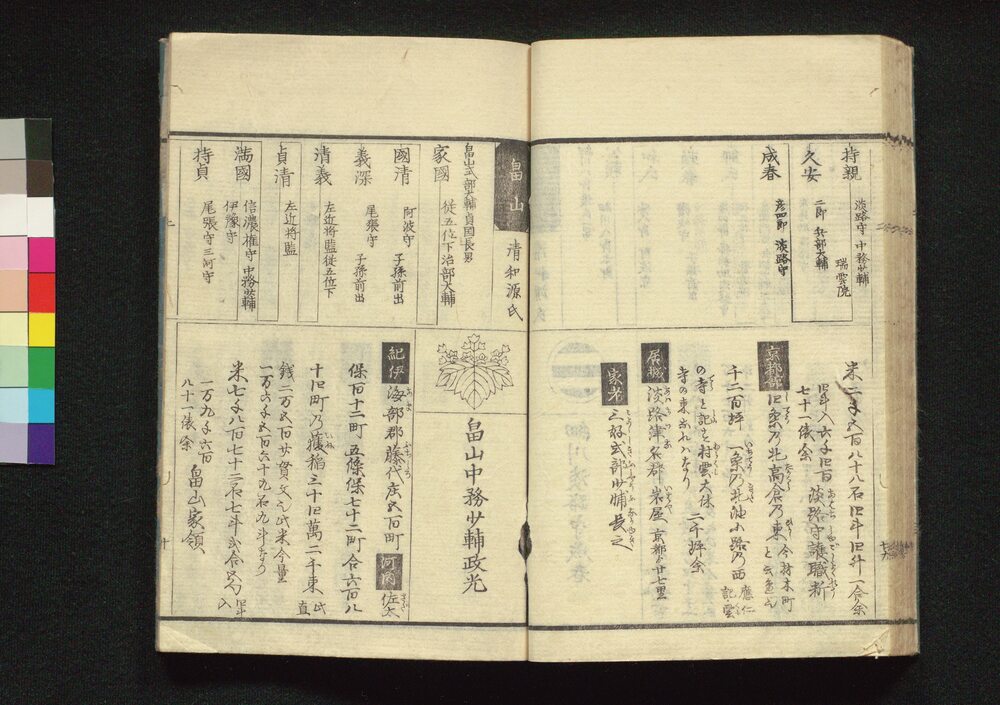 持親 淡路守 中務少輔
瑞雲院
久安 二郎 兵部大輔
成春 彦四郎 淡路守
米二千五百八十八石四斗四升一合余
淡路守護職料
七十一俵余
京都館 四条乃北高倉乃東 今材木町
千二百坪 一条乃北油小路乃西 應仁記
の寺と記す村雲大休 二千坪余
寺の東これハなり
居城 淡路津名郡 米屋 京都ゟ廿七里
家老 三好式部少輔長之
畠山 清和源氏
畠山式部大輔貞國長男
家國 従五位下治部大輔
國清 阿波守 子孫前出
義深 尾張守 子孫前出
清義 左近将監従五位下
貞清 左近将監
満國 信濃権守 中務少輔
伊豫守
持貞 尾張守三河守
畠山中務少輔政光
紀伊 海部郡藤代庄五百町 河内 佐太
保百十二町 五條保七十二町合六百八
十四町乃穫稲三十四萬二千束 此直
銭二万五百廿貫文 此米今量
一万六千五百六十九石九斗なり
米七千八百七十二石七斗
一万九千六百
八十一俵余
畠山家領